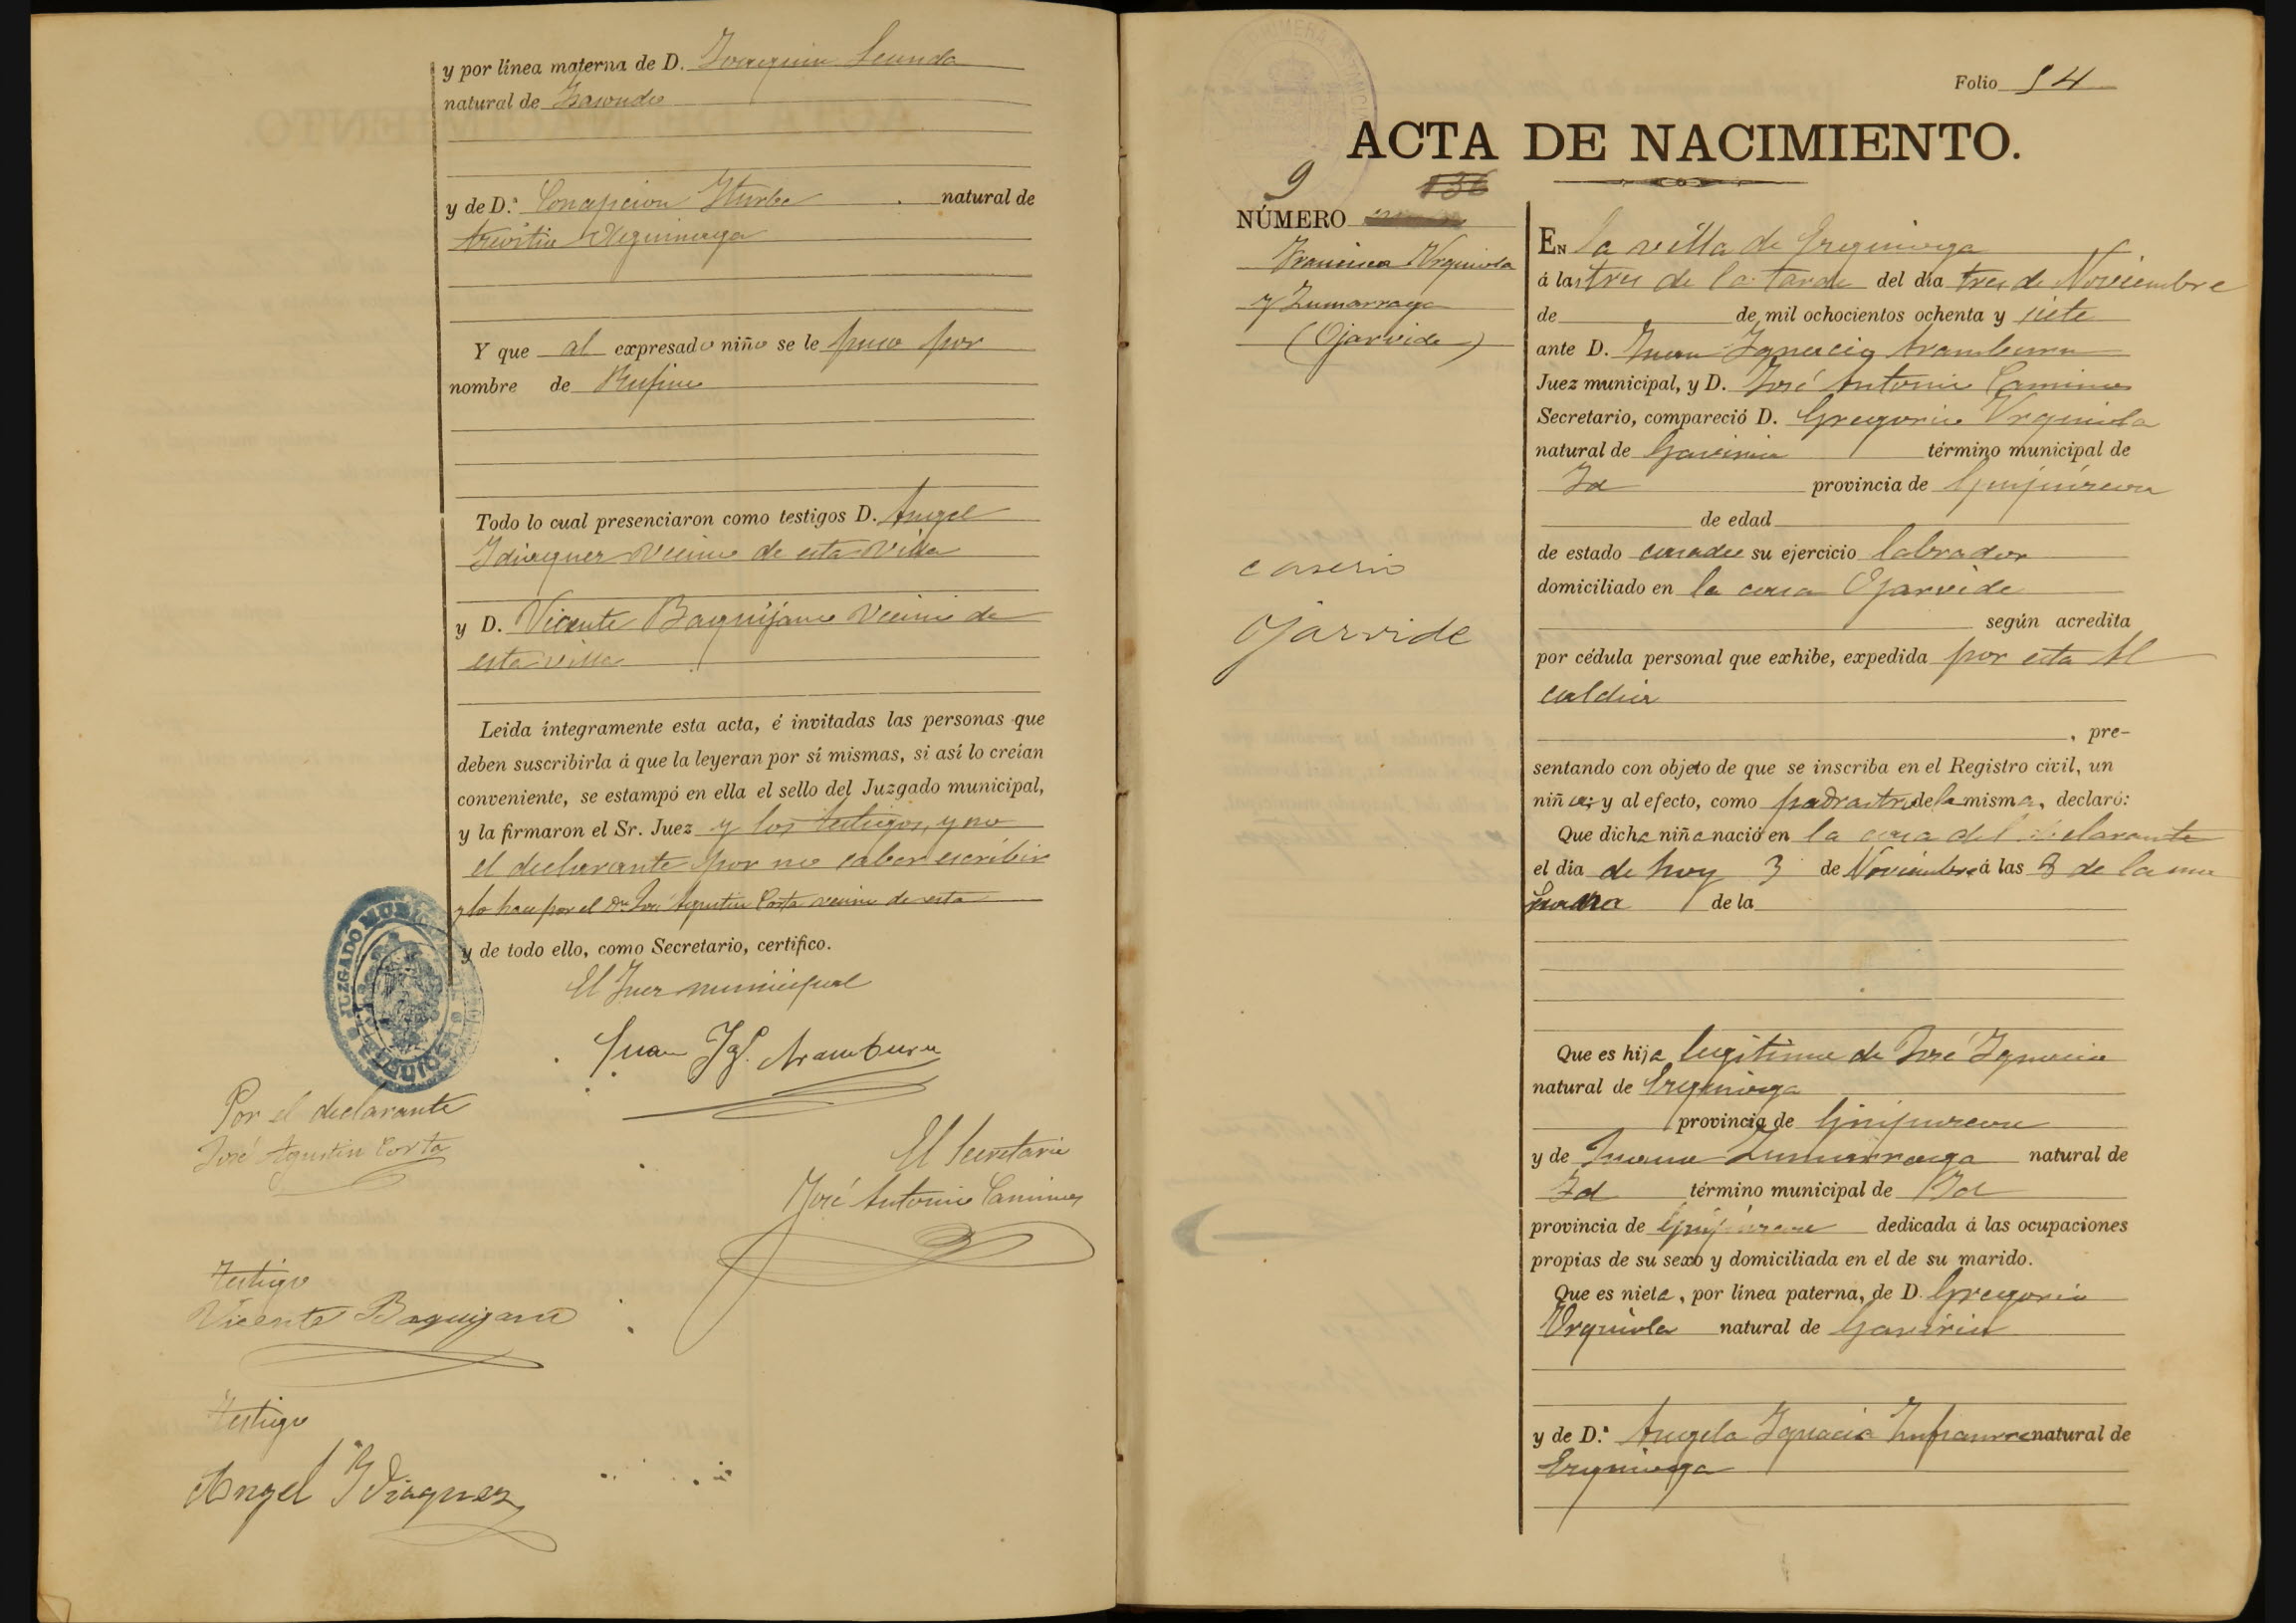 y por línea materna de D. Joaquin Leunda
natural de
y de D.ª Concepcion Iturbe natural de
Y que al expresado niño se le puso por
nombre de Rufino
Todo lo cual presenciaron como testigos D. Angel
Idiaquez vecino de esta villa
y D. Vicente Baquijano vecino de
esta villa
Leida íntegramente esta acta, é invitadas las personas que
deben suscribirla á que la leyeran por sí mismas, si así lo creían
conveniente, se estampó en ella el sello del Juzgado municipal,
y la firmaron el Sr. Juez y los testigos, y no
el declarante por no saber escribir
y lo hace por el Dn. José Agustin Corta vecino de esta
y de todo ello, como Secretario, certifico.
JUZGADO MUNICIPAL
El Juez municipal
Juan Ig. Aramburu
Por el declarante
José Agustin Corta
El Secretario
José Antonio Caminos
Testigo
Vicente Baquijano
Testigo
Angel Idiaquez
Folio 54
ACTA DE NACIMIENTO.
9
136
NÚMERO
Francisca Urquiola
y Zumarraga
(Ojarvide)
caserio
Ojarvide
EN la villa de Ezquioga
á las tres de la tarde del día tres de Noviembre
de de mil ochocientos ochenta y siete
ante D. Juan Ignacio Aramburu
Juez municipal, y D. José Antonio Caminos
Secretario, compareció D. Gregorio Urquiola
natural de Gaviria término municipal de
Id provincia de Guipúzcoa
de edad
de estado casado su ejercicio labrador
domiciliado en la casa Ojarvide
según acredita
por cédula personal que exhibe, expedida por esta Al
caldia
, pre-
sentando con objeto de que se inscriba en el Registro civil, un
niña; y al efecto, como padrastro de la misma, declaró:
Que dicha niña nació en la casa del declarante
el día de hoy 3 de Noviembre á las 3 de la ma
ñana de la
Que es hija legitima de José Ignacio
natural de Ezquioga
provincia de Guipuzcoa
y de Juana Zumarraga natural de
Id término municipal de Id
provincia de Guipuzcoa dedicada á las ocupaciones
propias de su sexo y domiciliada en el de su marido.
Que es nieta, por línea paterna, de D. Gregorio
Urquiola natural de Gaviria
y de D.ª Angela Ignacia natural de
Ezquioga